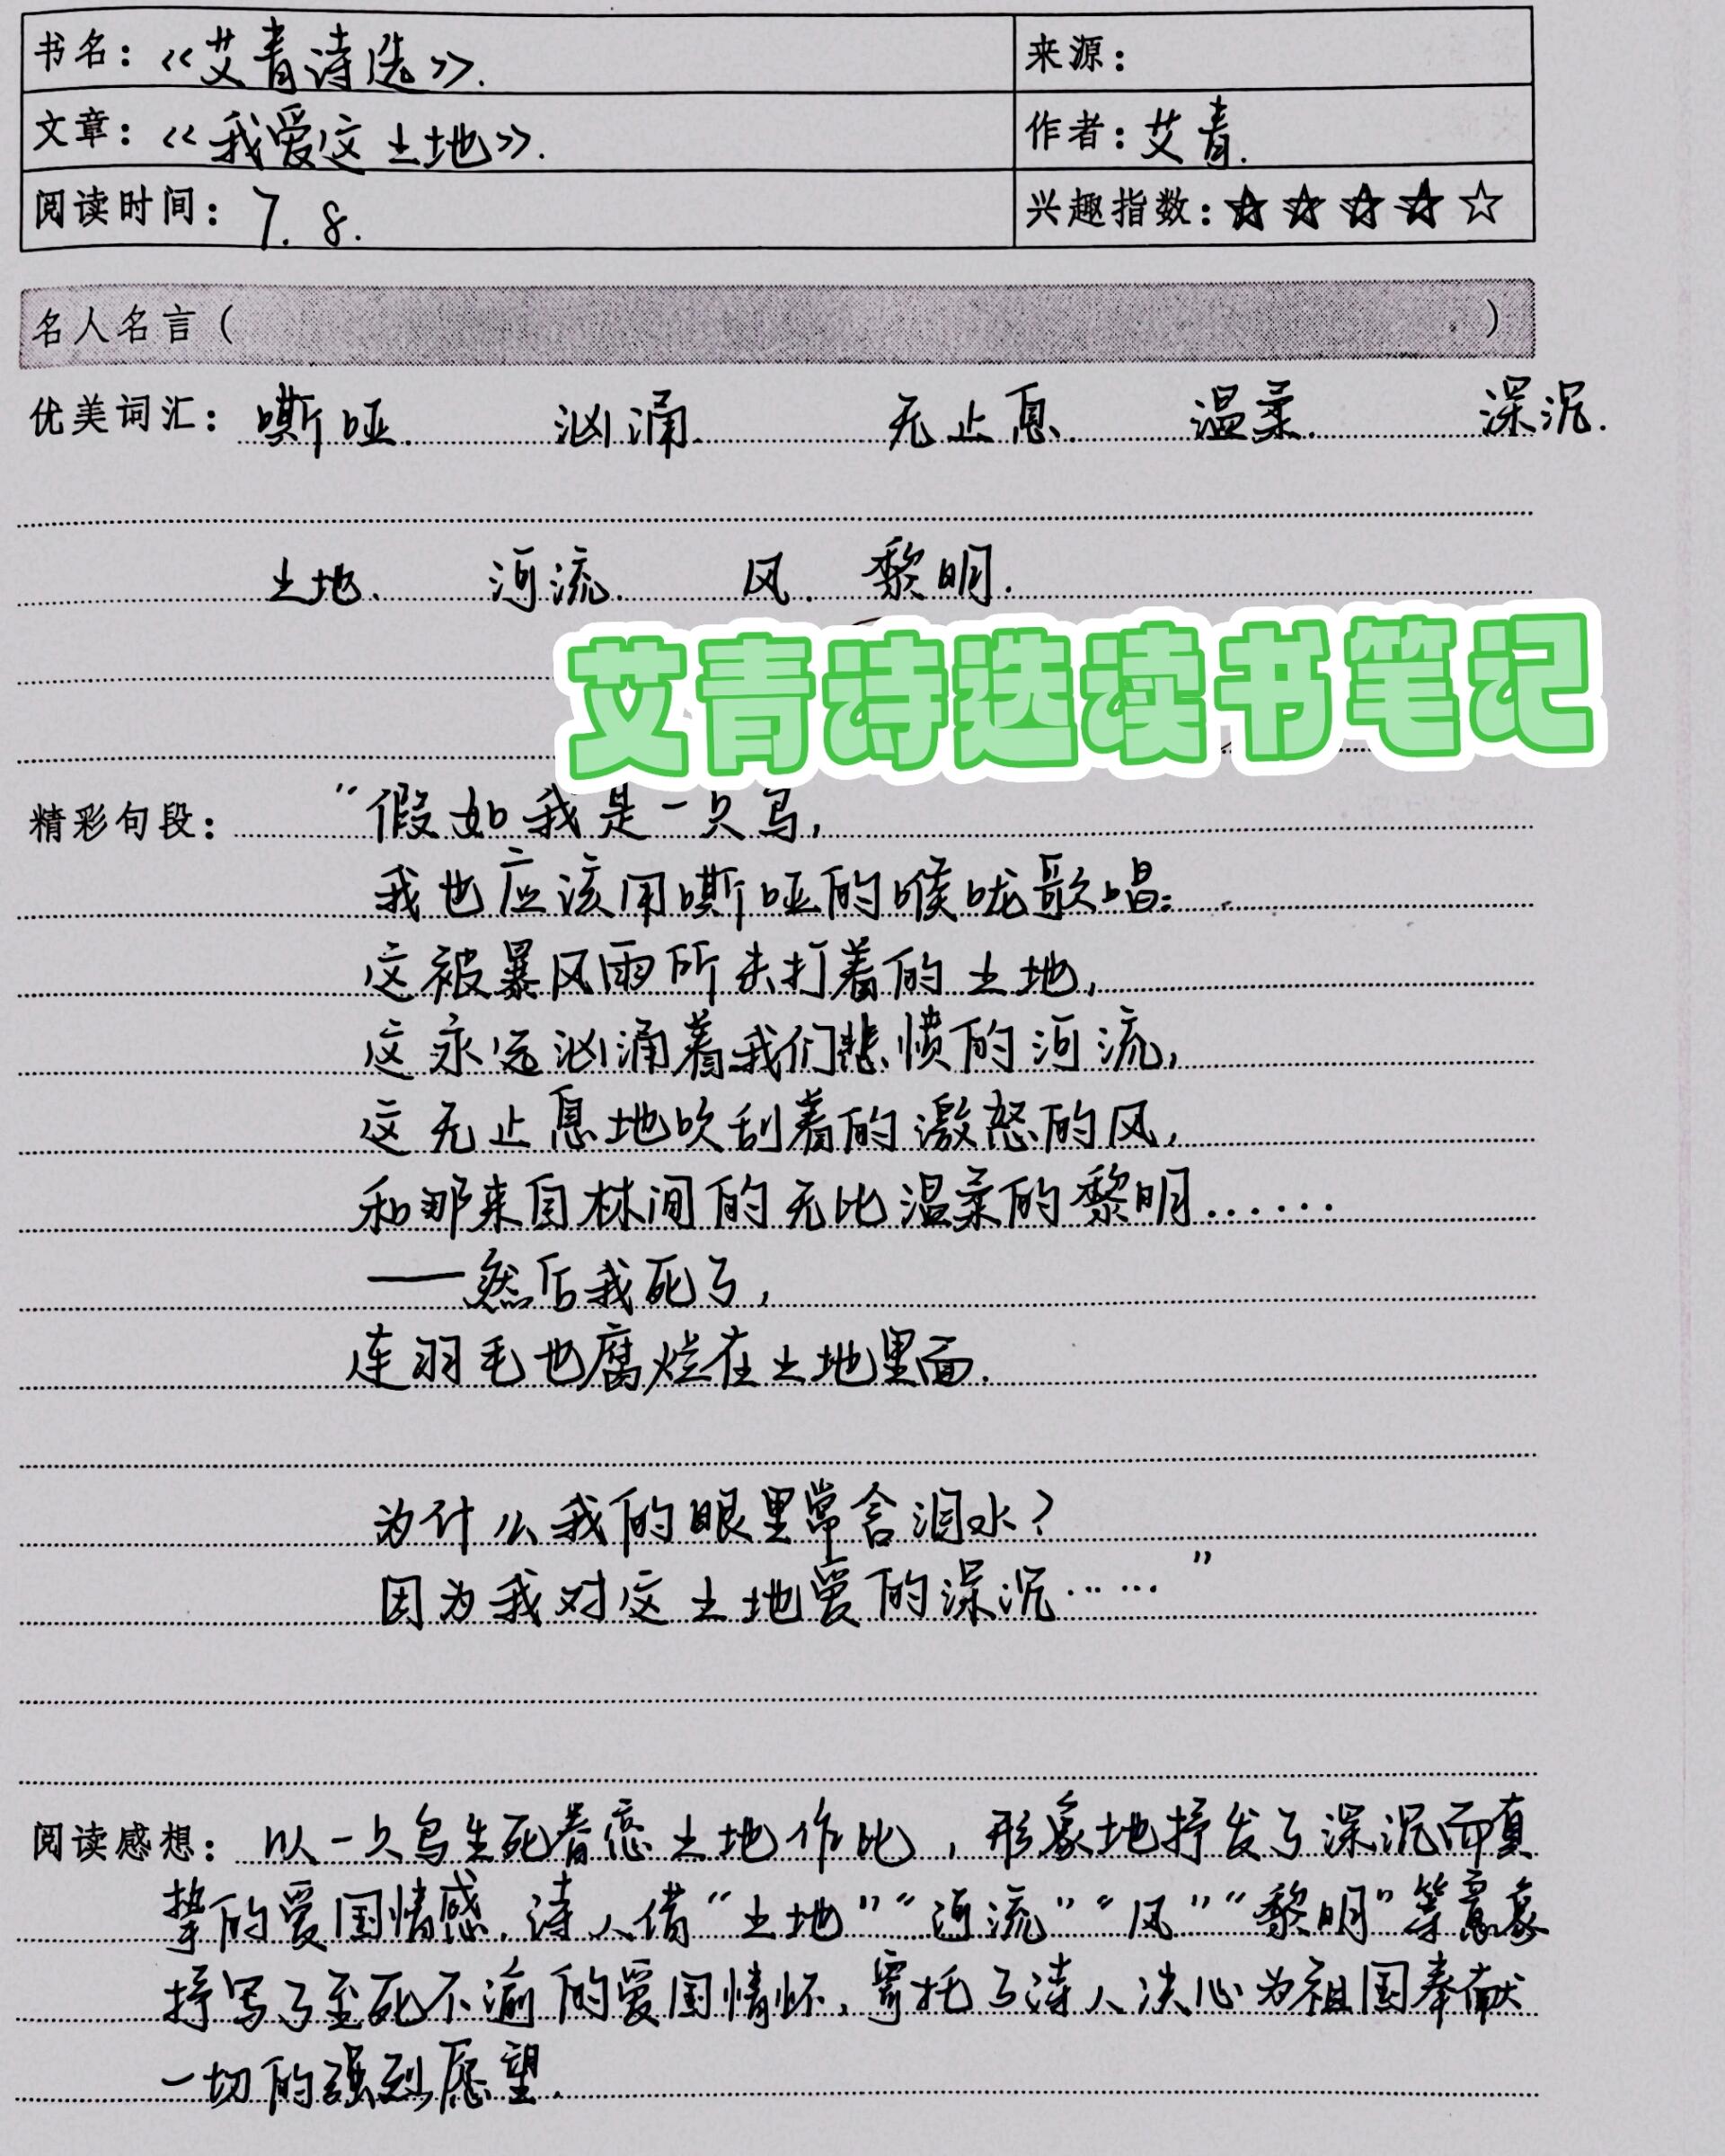 书名：《艾青诗选》.
来源：
文章：《我爱这土地》.
作者：艾青.
阅读时间：7.8.
兴趣指数：★★★★☆
名人名言（ ）
优美词汇：嘶哑. 汹涌. 无止息. 温柔. 深沉.
土地. 河流. 风. 黎明.
艾青诗选读书笔记
精彩句段：“假如我是一只鸟,
我也应该用嘶哑的喉咙歌唱:
这被暴风雨所击打着的土地,
这永远汹涌着我们悲愤的河流,
这无止息地吹刮着的激怒的风,
和那来自林间的无比温柔的黎明......
——然后我死了,
连羽毛也腐烂在土地里面.
为什么我的眼里常含泪水?
因为我对这土地爱的深沉……”
阅读感想：以一只鸟生死眷恋土地作比，形象地抒发了深沉而真
挚的爱国情感.诗人借“土地”“河流”“风”“黎明”等意象
抒写了至死不渝的爱国情怀,寄托了诗人决心为祖国奉献
一切的强烈愿望.